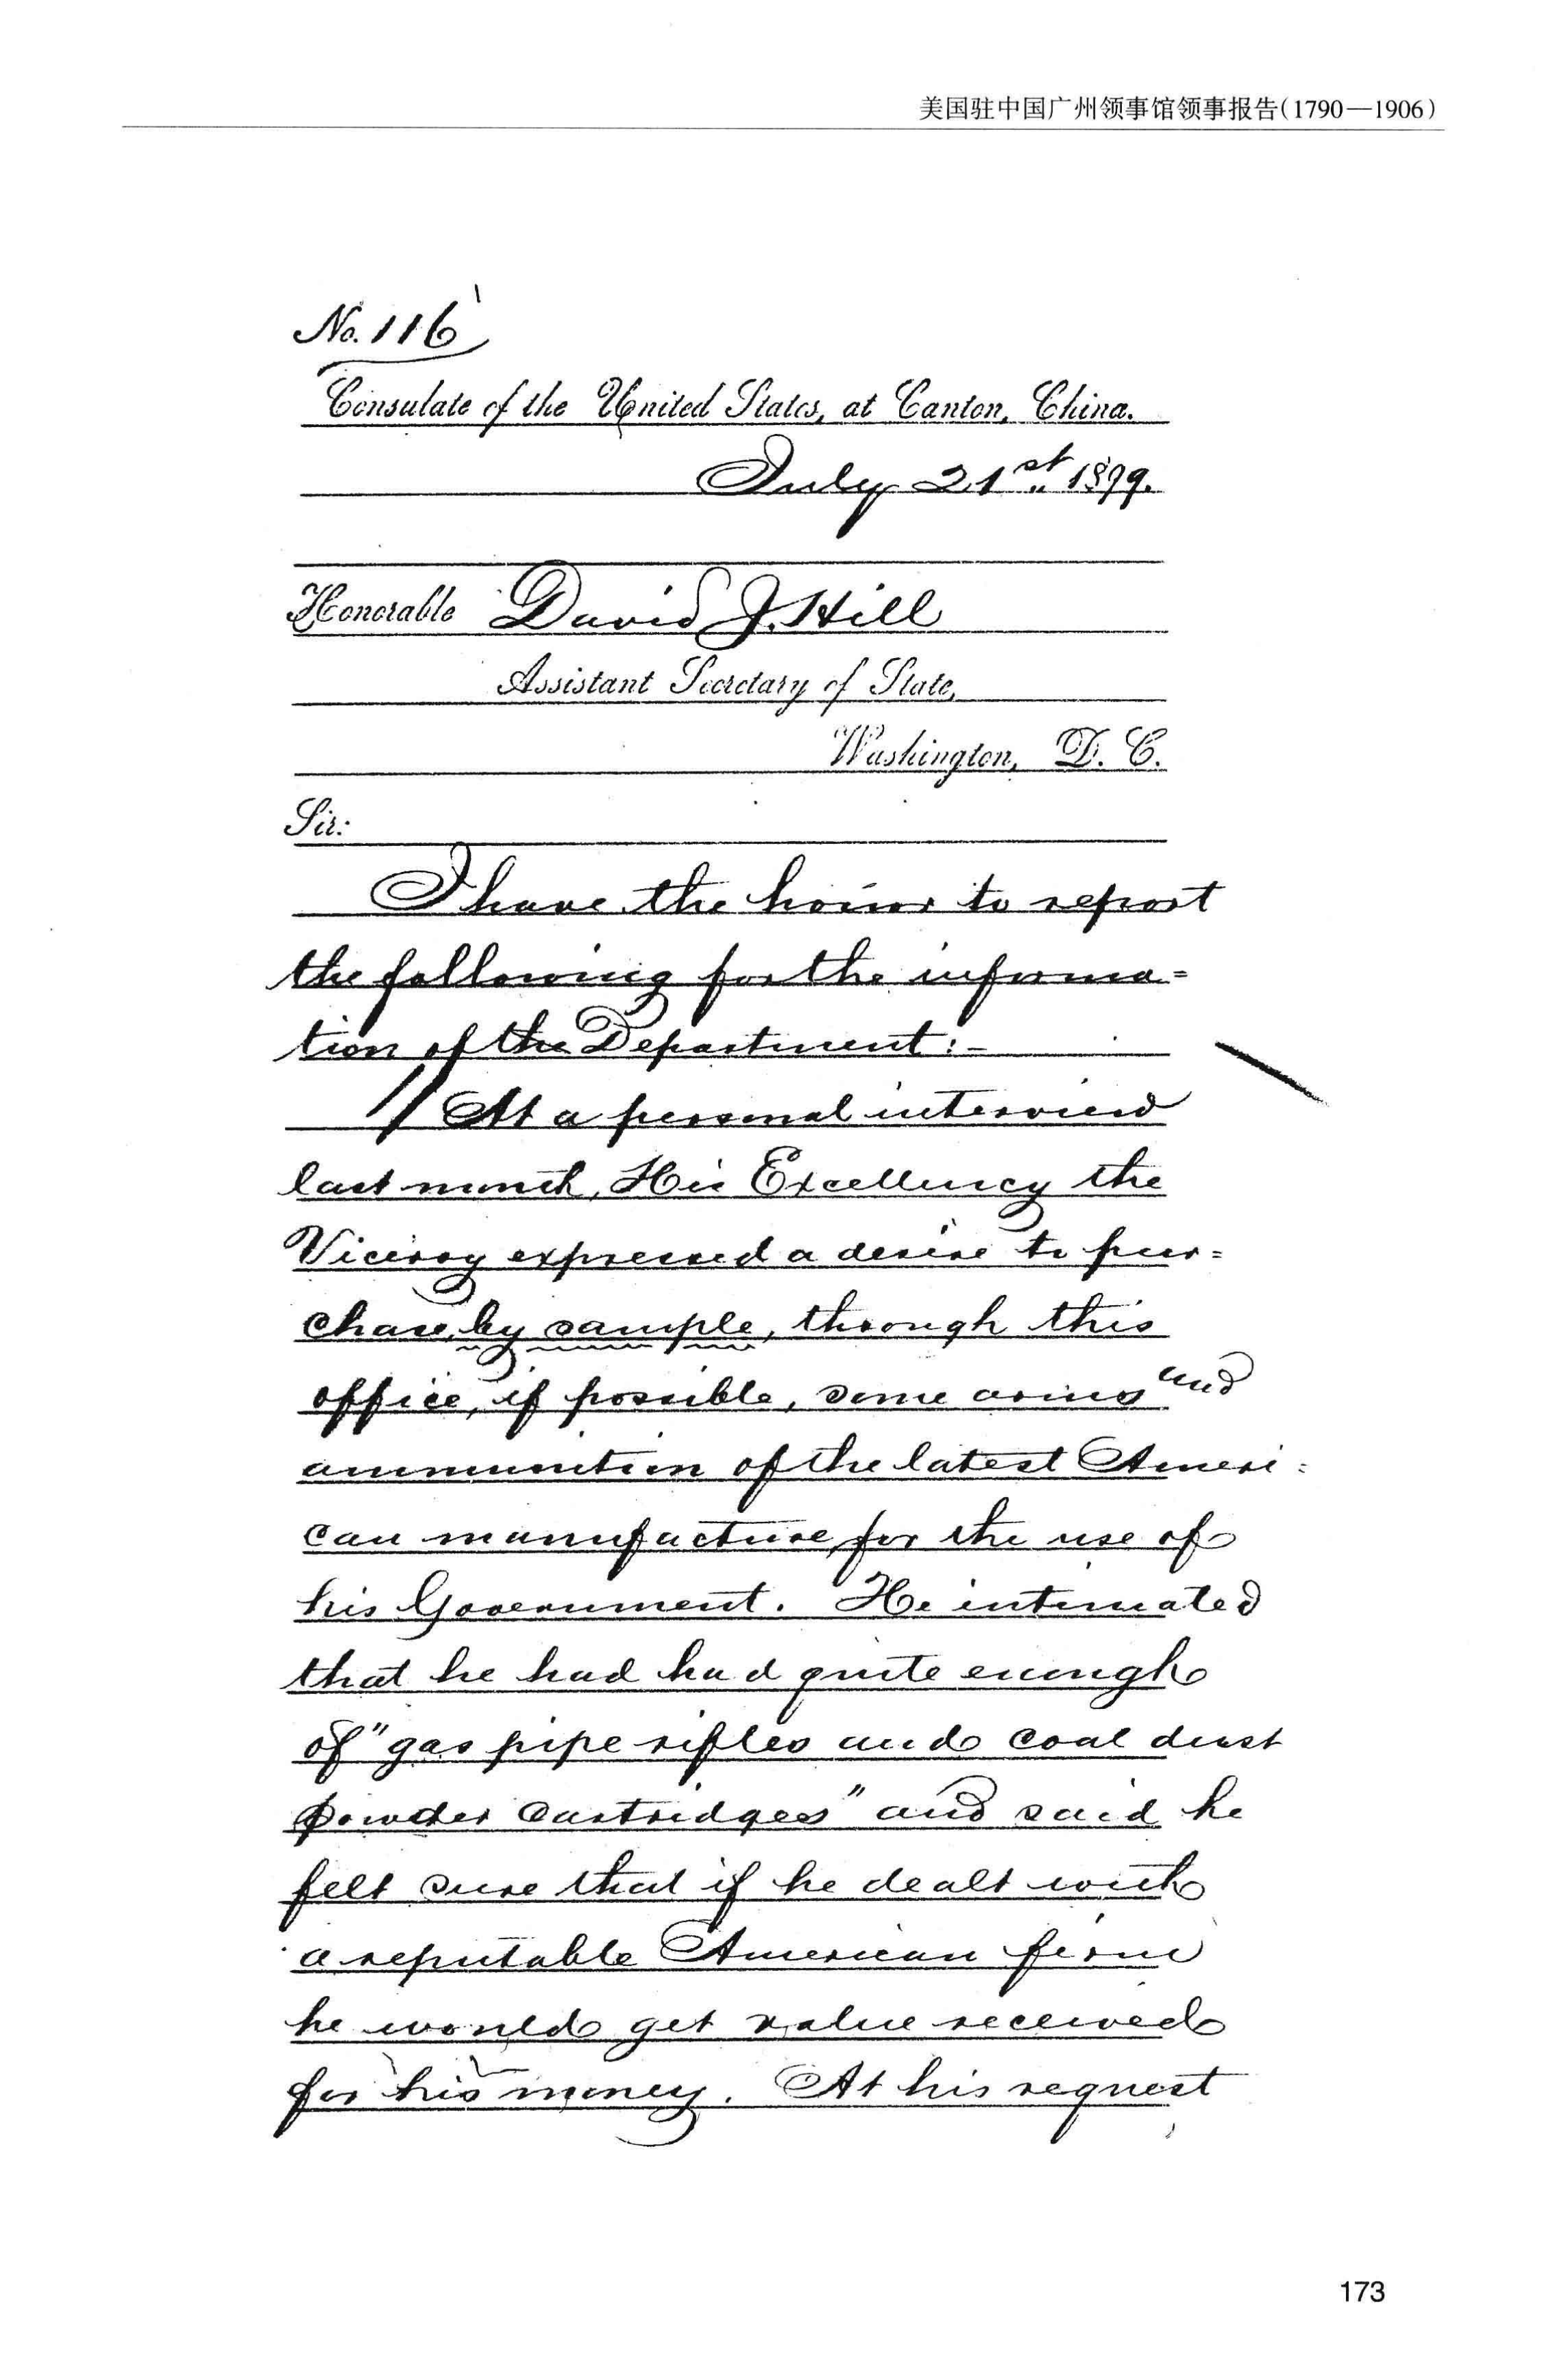 美国驻中国广州领事馆领事报告(1790—1906)
No. 116
Consulate of the United States, at Canton, China.
July 21st 1899.
Honorable David J. Hill
Assistant Secretary of State,
Washington, D. C.
Sir:
I have the honor to report
the following for the informa=
tion of the Department:-
At a personal interview
last month, His Excellency the
Viceroy expressed a desire to pur=
chase, by sample, through this
office, if possible, some arms and
ammunition of the latest Ameri=
can manufacture, for the use of
his Government. He intimated
that he had had quite enough
of "gas pipe rifles and coal dust
powder cartridges" and said he
felt sure that if he dealt with
a reputable American firm
he would get value received
for his money. At his request
173